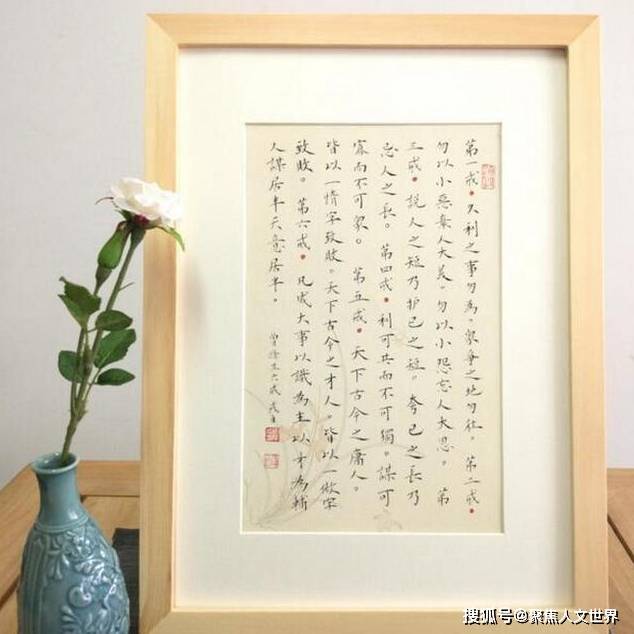 第一戒·久利之事勿為。衆爭之地勿往。第二戒·
勿以小惡棄人大美。勿以小怨忘人大恩。第
三戒·説人之短乃护己之短。夸己之長乃
忌人之長。第四戒·利可共而不可獨。謀可
寡而不可衆。第五戒·天下古今之庸人。
皆以一惰字致敗。天下古今之才人。皆以一傲字
致敗。第六戒·凡成大事以識為主以才為輔
人謀居半天意居半。
曾滌生六戒
搜狐号@聚焦人文世界